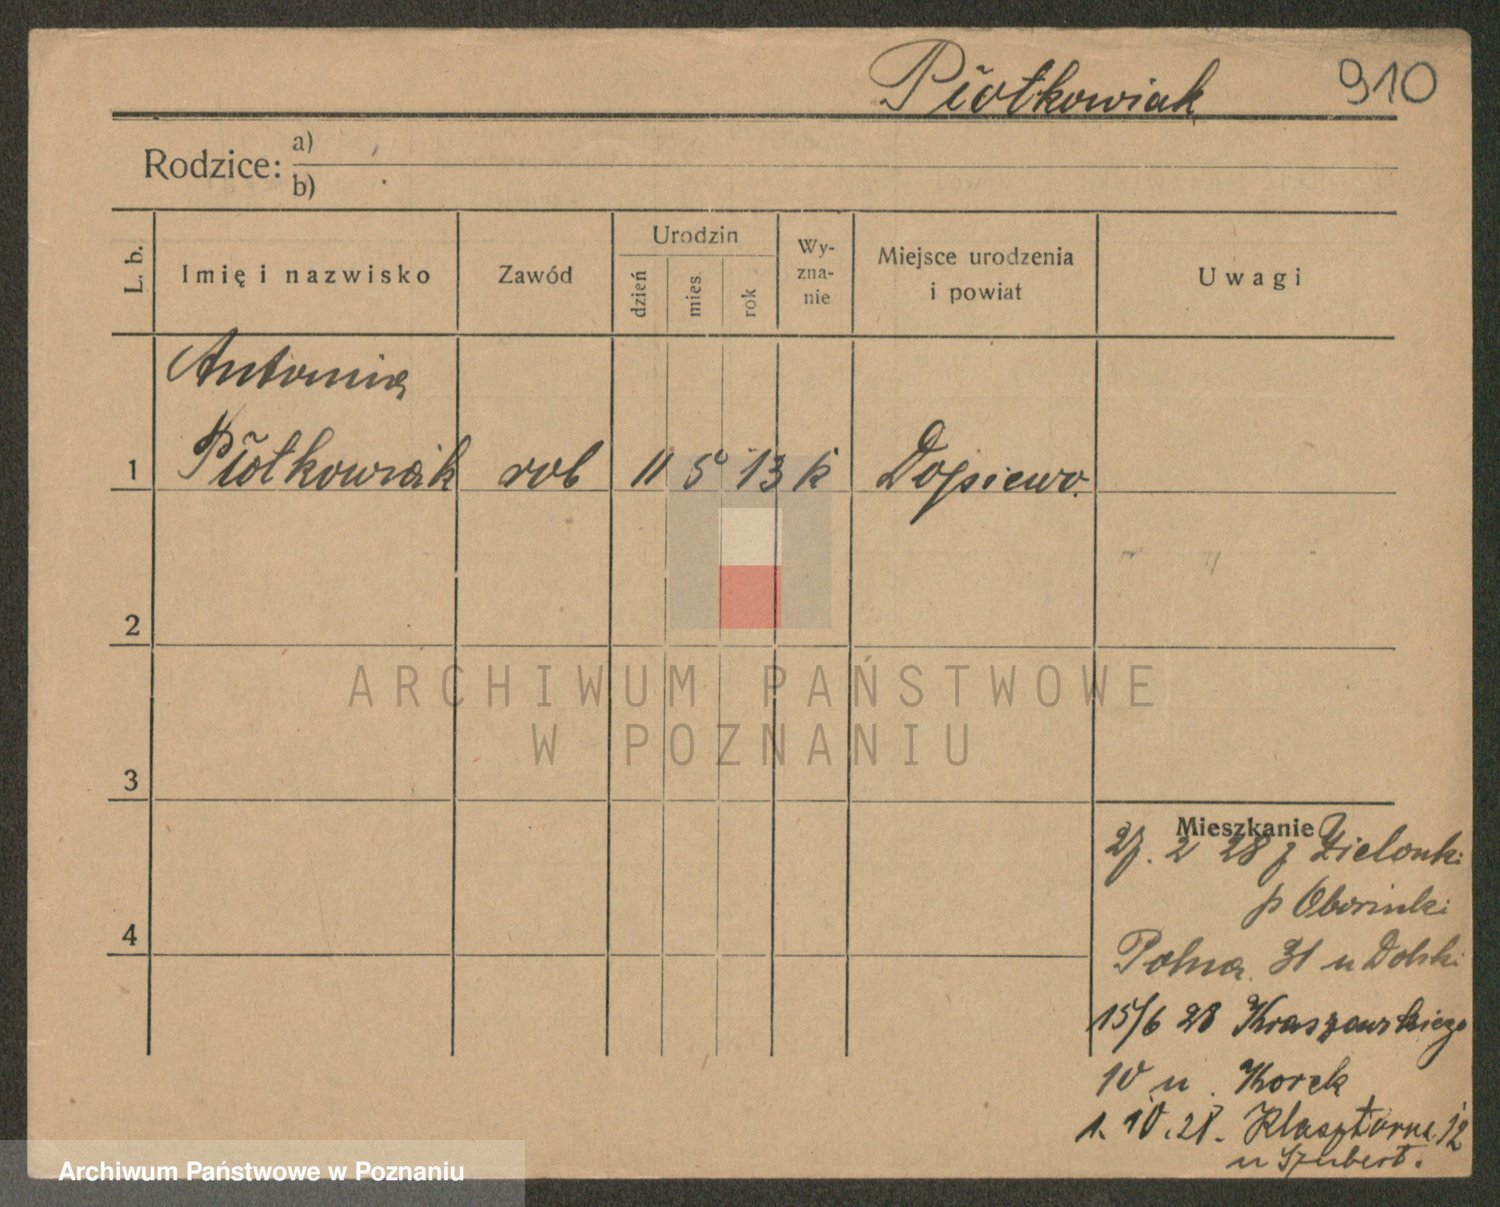 Piotkowiak 910
Rodzice: a)
b)
L. b.
Imię i nazwisko
Zawód
Urodzin
dzień
mies.
rok
Wy-
zna-
nie
Miejsce urodzenia
i powiat
Uwagi
Antonina
1 Piotkowiak rob 11 5 13 k Dopiewo.
2
3
4
Mieszkanie
27. 2 28 z Zielonki
p Obornicki
Polna 31 u Dolski
15/6 28 Kraszewskiego
10 u. Korek
1. 10. 28. Klasztorna 12
u Szubert.
ARCHIWUM PAŃSTWOWE
W POZNANIU
Archiwum Państwowe w Poznaniu